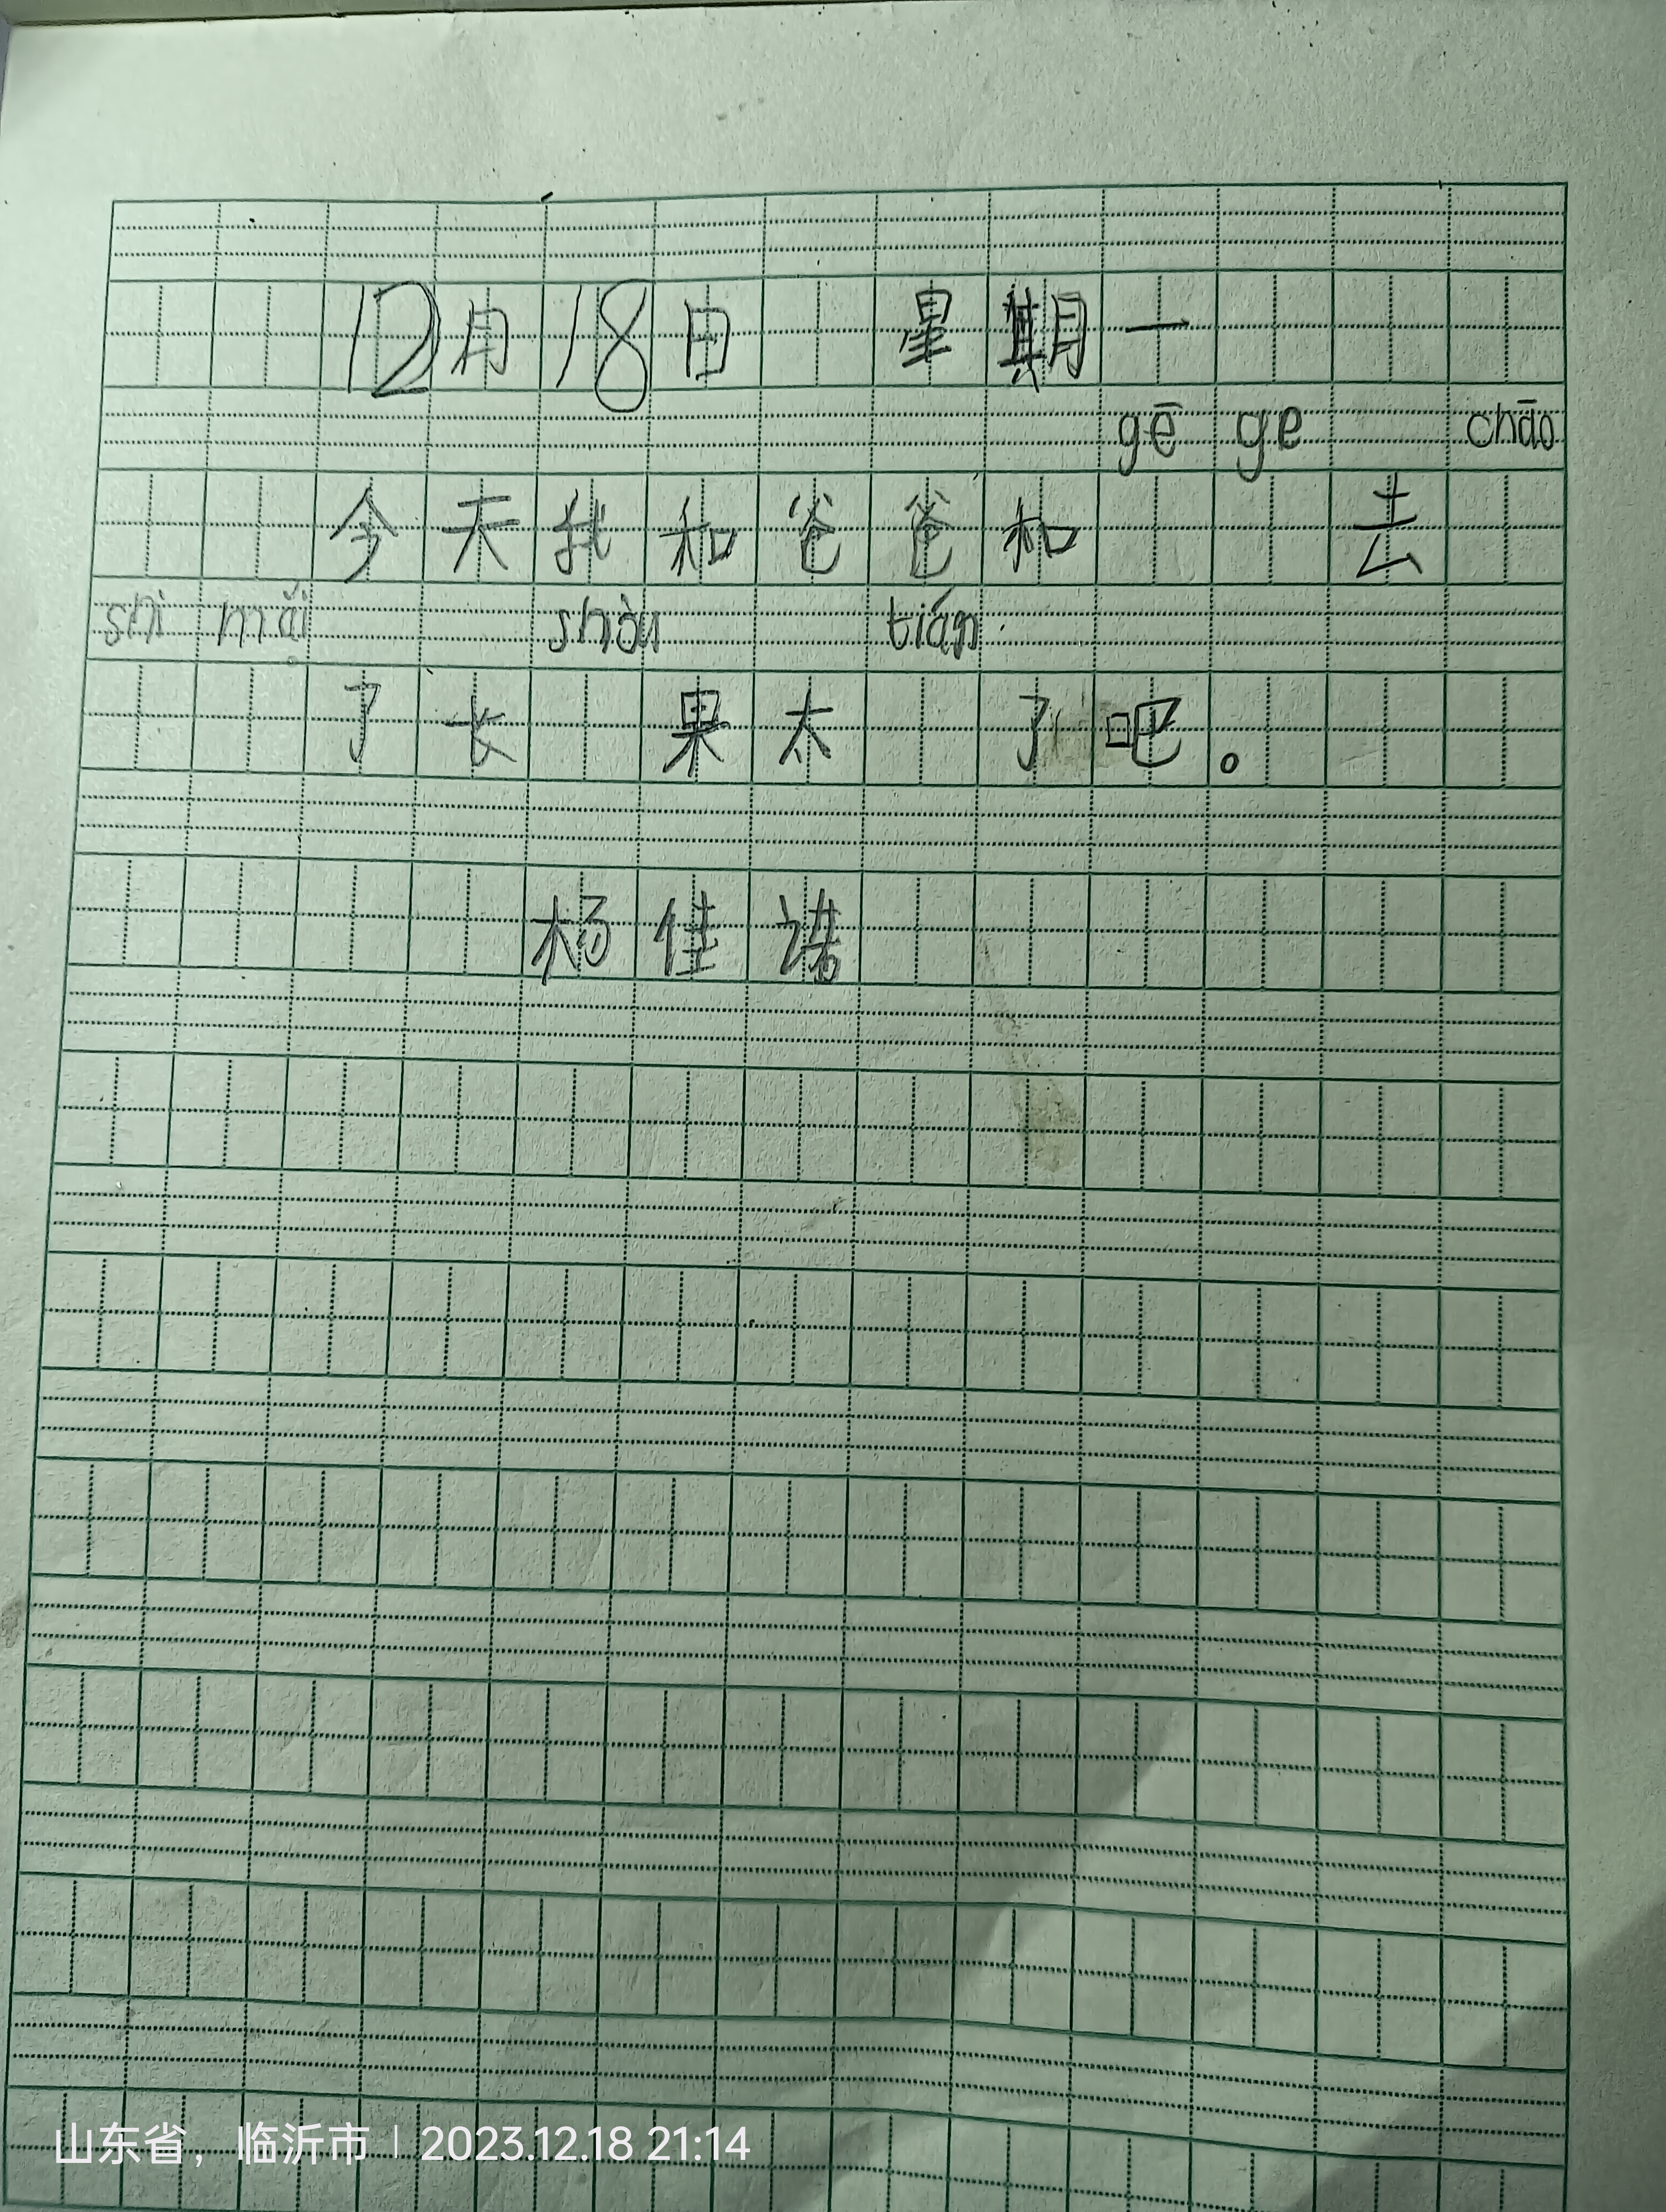 12月18日 星期一
gē ge chāo
今天我和爸爸和 去
shì mǎi shòu tián
了长 果太 了吧。
杨佳诺
山东省，临沂市 | 2023.12.18 21:14